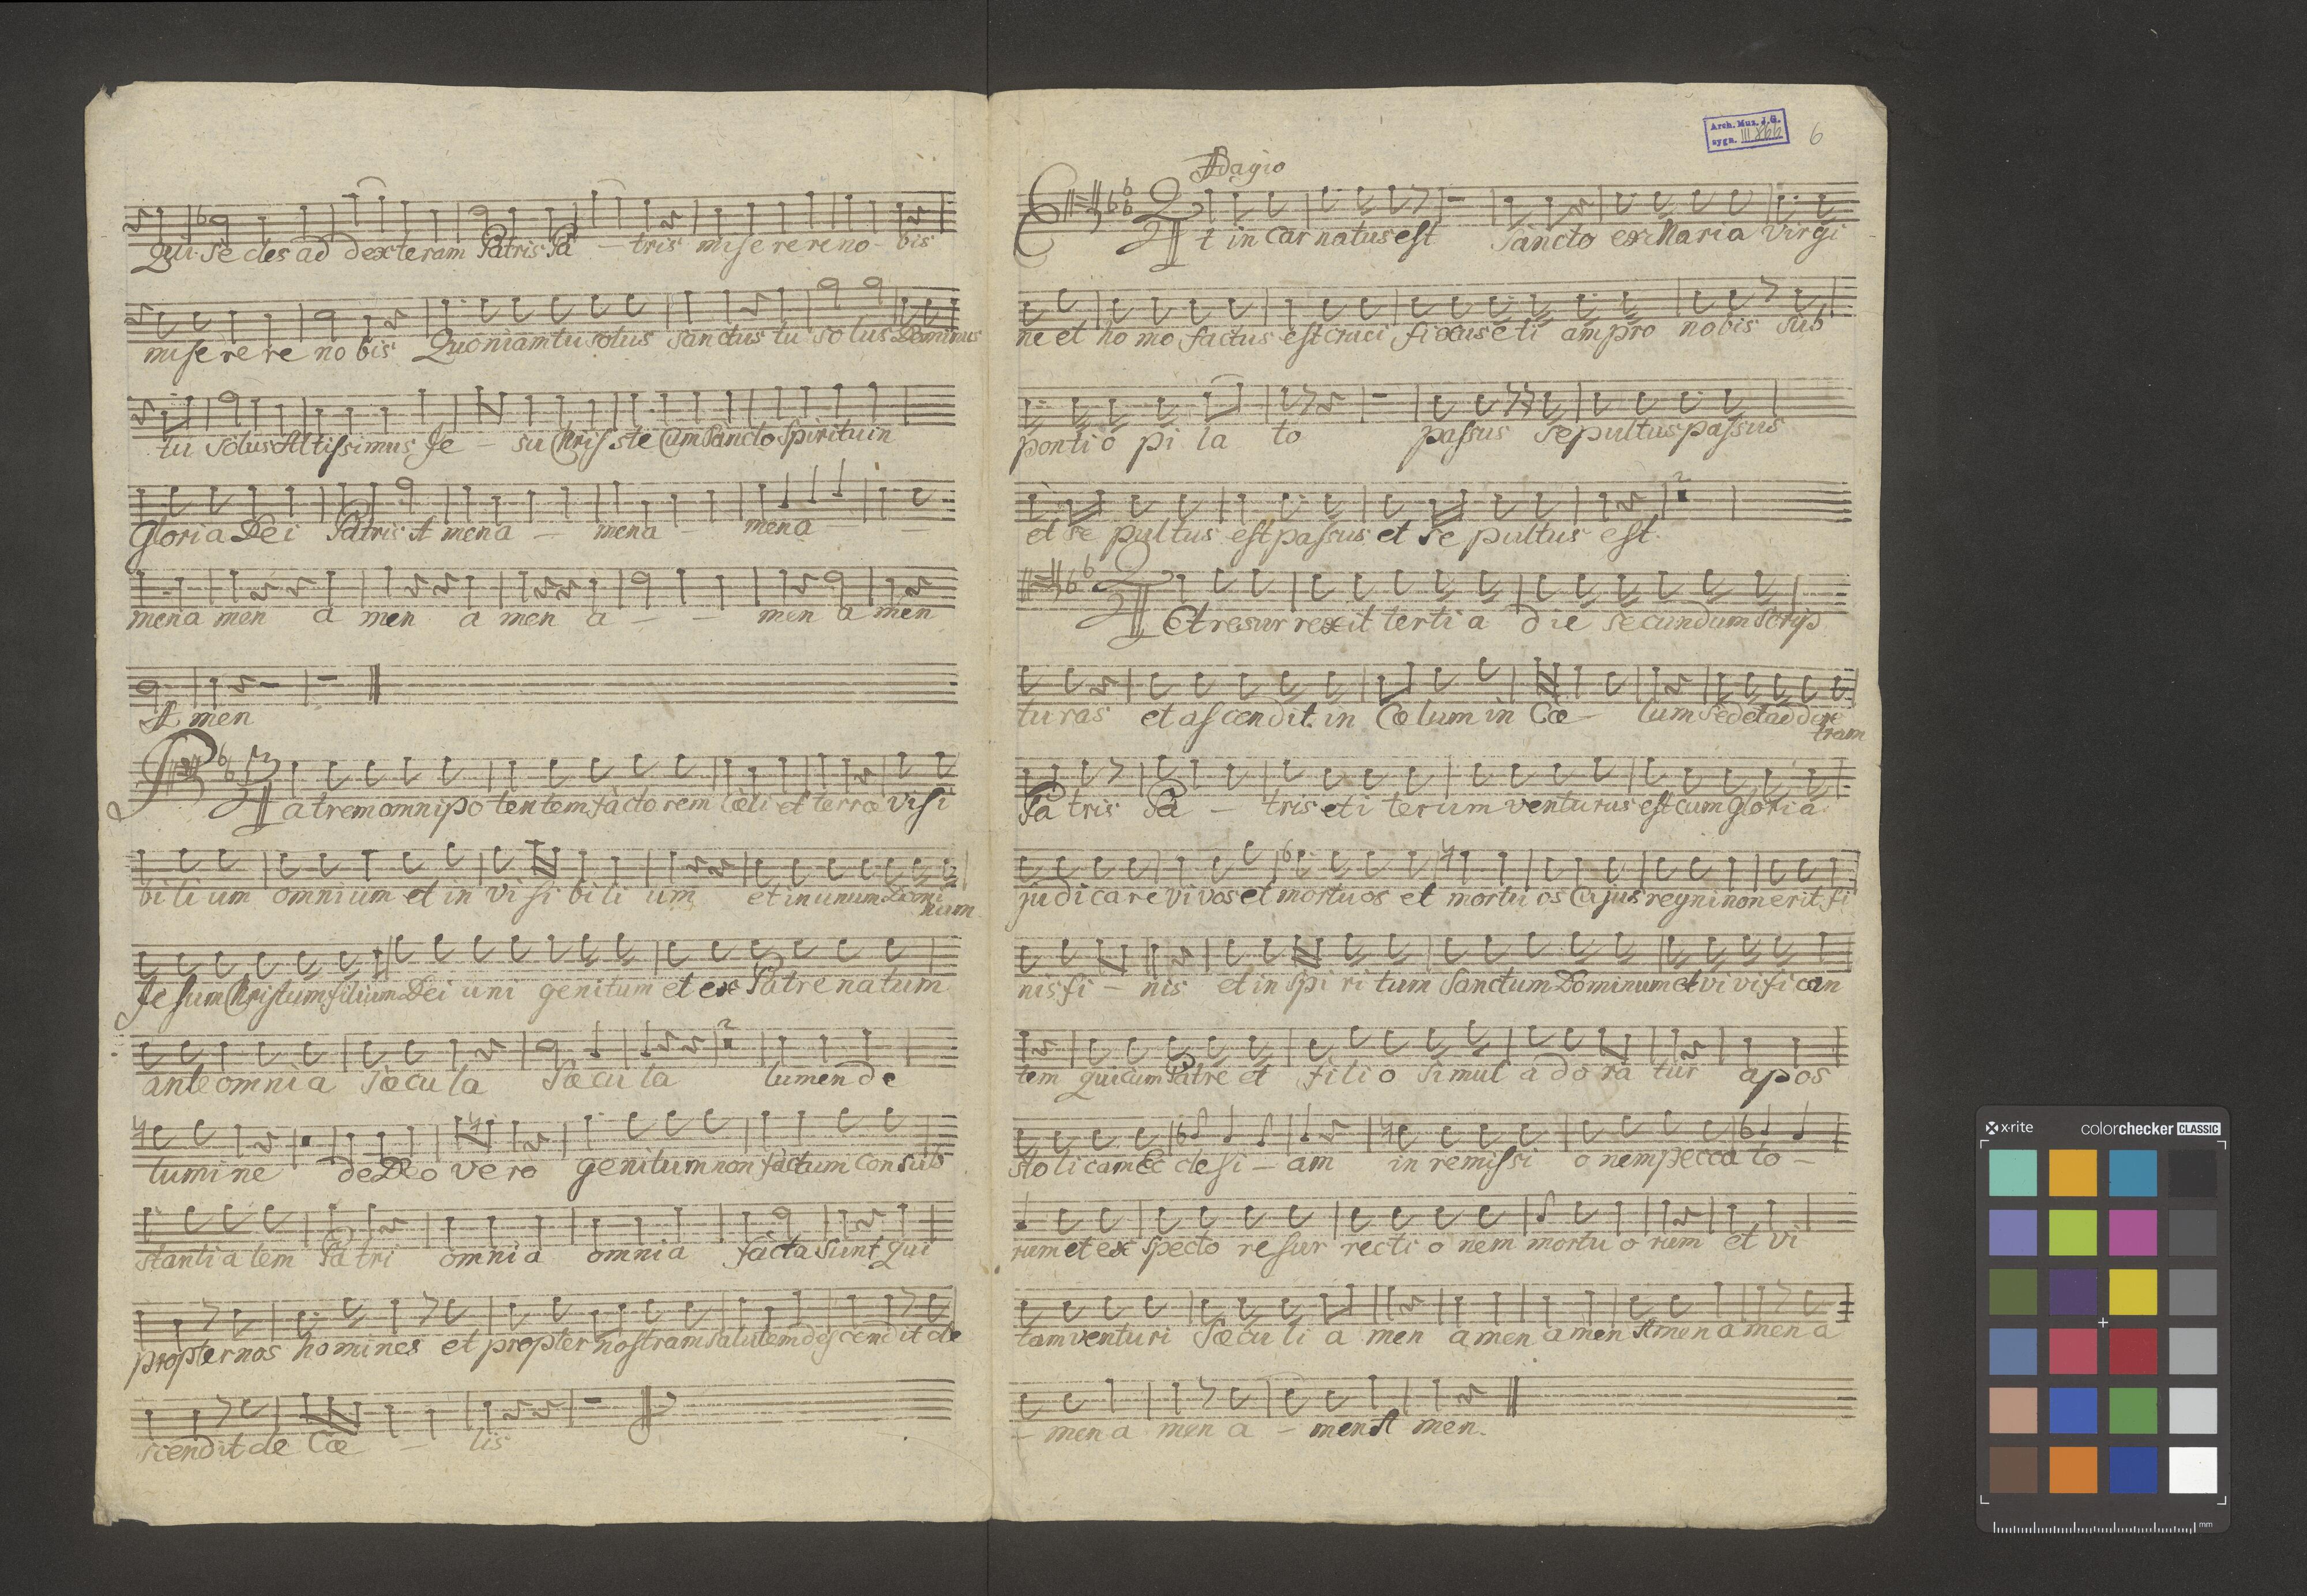 Qui sedes ad dexteram Patris Pa - tris miserere no - bis
miserere nobis Quoniam tu solus sanctus tu solus Dominus
tu solus Altissimus Je - su Christe Cum Sancto Spiritu in
Gloria Dei Patris A mena - mena - mena
mena men a men a men a - - men a men
A men
Patrem omnipotentem factorem cœli et terrœ visi
bilium omnium et invisibilium et in unum Domi
num
Jesum Christum filium Dei uni genitum et ex Patre natum
ante omnia sœcula sœcula lumen de
lumine de Deo vero genitum non factum consub
stantiatem Patri omnia omnia facta sunt qui
propter nos homines et propter nostram salutem descendit de
scendit de Cœ - lis
Arch. Muz. J.G.
sygn. III 866
6
Adagio
Et in carnatus est sancto ex Maria Virgi
ne et homo factus est cruci fixus eti am pro nobis sub
pontio pi la to passus sepultus passus
et se pultus est passus et se pultus est.
Et resurrexit tertia die secundum Scrip
turas et ascendit in Cœlum in Cœ - lum sedet ad dex
tram
Patris Pa - tris et iterum venturus est cum gloria
judicare vivos et mortuos et mortuos Cujus regni non erit fi
nis fi - nis et in spiritum Sanctum Dominum et vivifican
tem qui cum Patre et filio simul adoratur apos
stolicam Ecclesi - am in remissi onem pecca to -
rum et exspecto resurrectionem mortuorum et vi
tam venturi sœculi a men amen amen Amen amen a
- men a men a - men A men.
x-rite
colorchecker CLASSIC
mm